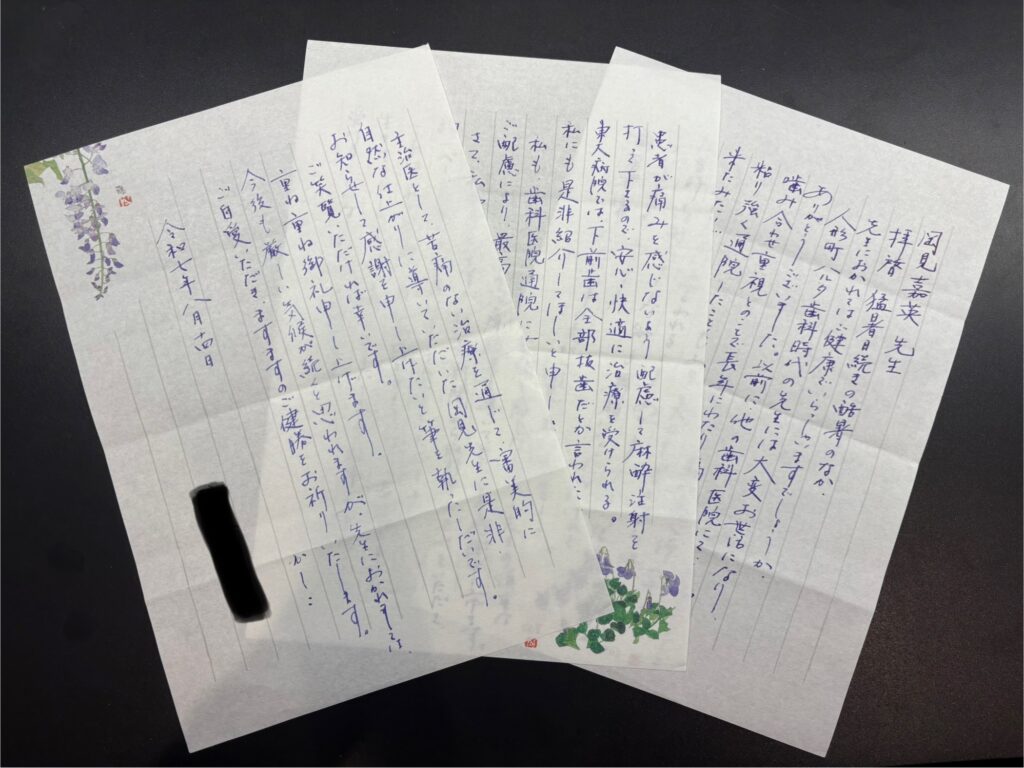 岡見嘉英 先生
拝啓 猛暑日続きの酷暑のなか、
先生におかれてはご健康でいらっしゃいますでしょうか。
人形町ヘルタ歯科時代の先生には大変お世話になり、
ありがとうございました。以前に、他の歯科医院にて
噛み合せ重視とのことで長年にわたり
粘り強く通院したこと
来たみたい
患者が痛みを感じないよう配慮して麻酔注射を
打って下さるので、安心・快適に治療を受けられる。
東大病院では、下前歯は全部抜歯だとか言われ
私にも是非紹介してほしいと申し
私も、歯科医院通院に
ご配慮により、最高
さて、私
主治医として、苦痛のない治療を通じて、審美的に
自然な仕上がりに導いていただいた岡見先生に是非、
お知らせして感謝を申し上げたいと筆を執ったしだいです。
ご笑覧いただければ幸いです。
重ね重ね御礼申し上げます。
今後も厳しい気候が続くと思われますが、先生におかれましては、
ご自愛いただき、ますますのご健勝をお祈りいたします。
かしこ
令和七年八月十四日